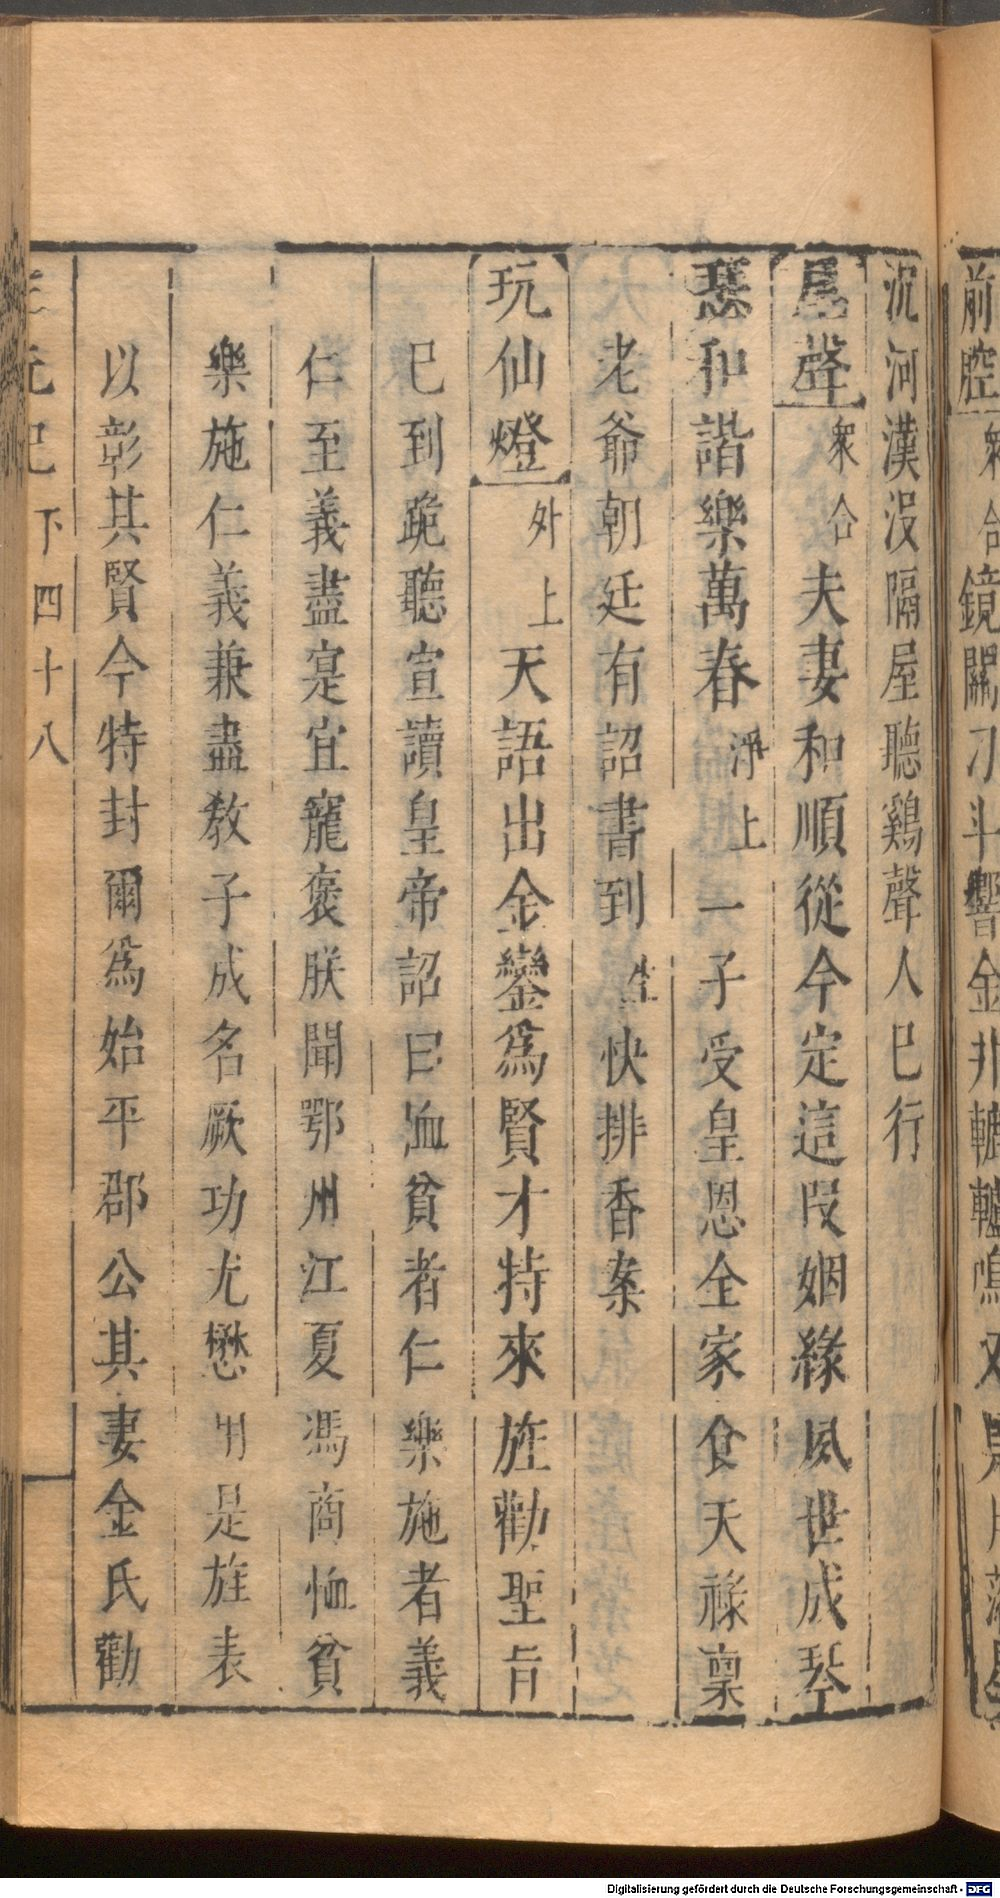 前腔衆合鏡關刁斗響金井轆轤鳴又
沉河漢没隔屋聽鷄聲人已行
尾聲衆合夫妻和順從今定這叚姻緣夙世成琴
瑟和諧樂萬春淨上一子受皇恩全家食天祿稟
老爺朝廷有詔書到生快排香案
玩仙燈外上天語出金鑾爲賢才特來旌勸聖旨
已到跪聽宣讀皇帝詔曰洫貧者仁樂施者義
仁至義盡寔宜寵褒朕聞鄂州江夏馮商恤貧
樂施仁義兼盡教子成名厥功尤懋用是旌表
以彰其賢今特封爾爲始平郡公其妻金氏勸
三元記下四十八
Digitalisierung gefördert durch die Deutsche Forschungsgemeinschaft - DFG